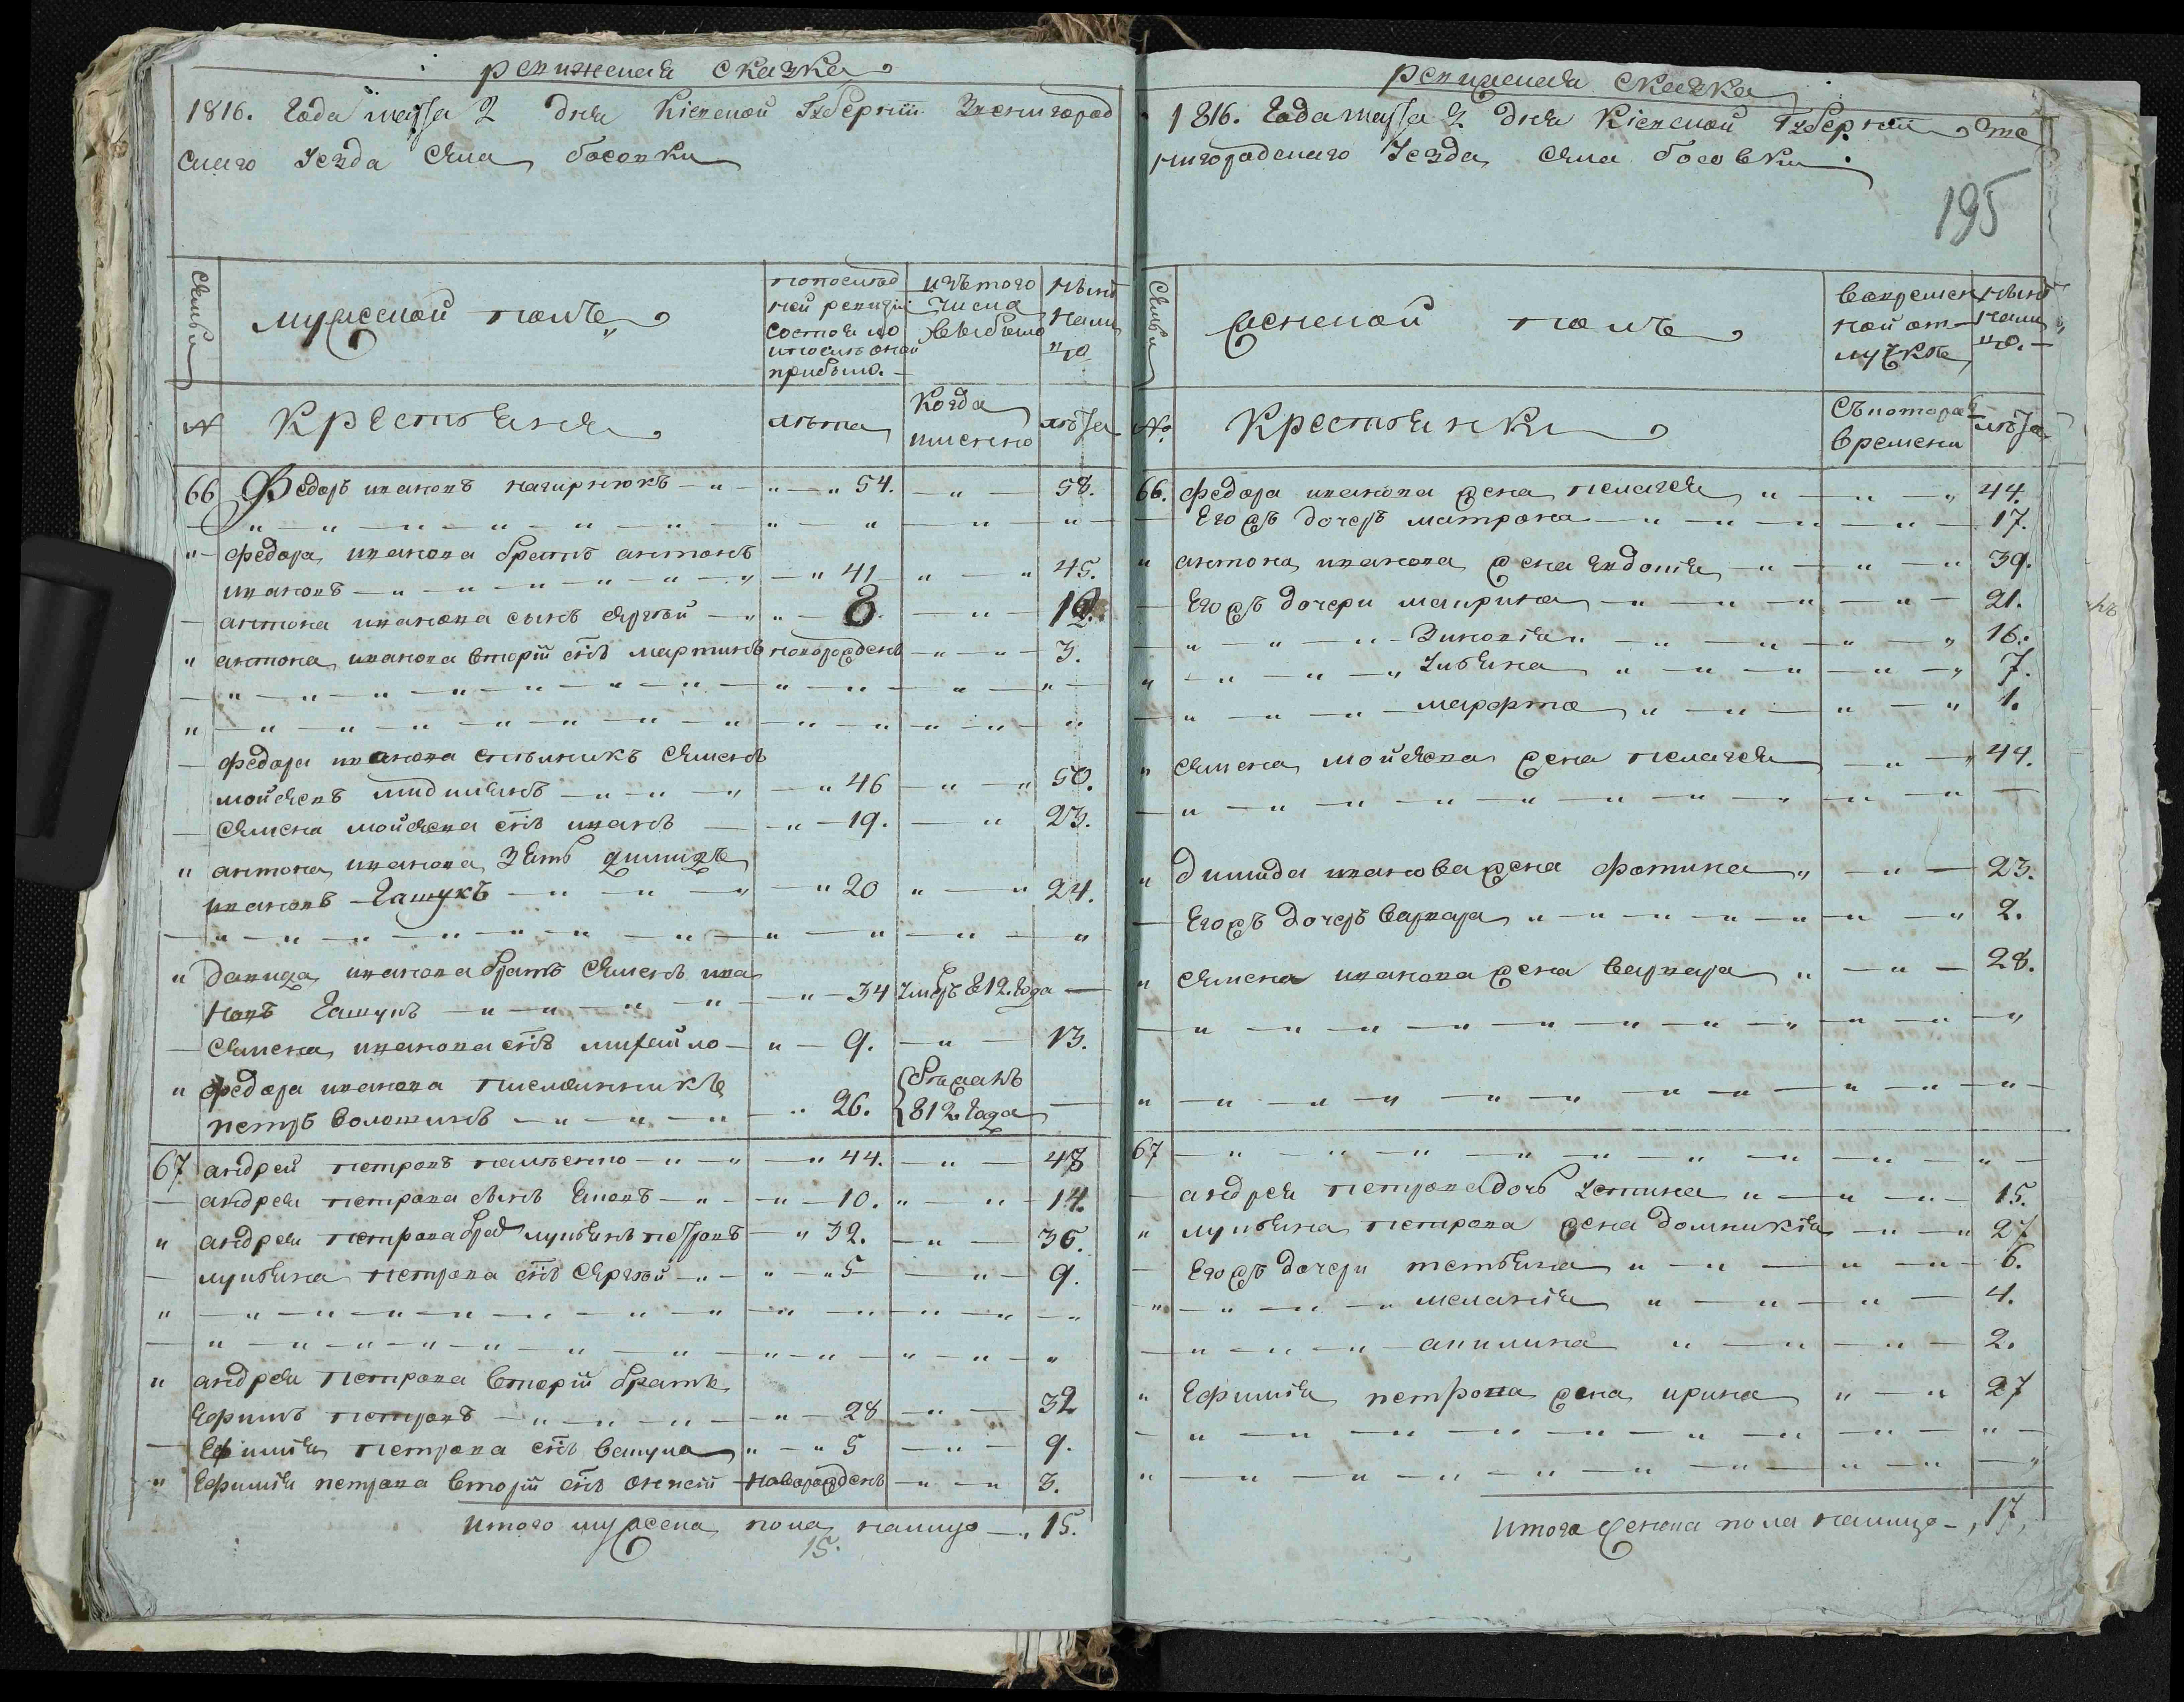 ревижская сказка
1816. Года маiя 2 дня Кiевской Губернiи Звенигород
скаго Уезда Села босовки
семьи
мужеской полъ
попослед
ней ревизiи
состояло
и после оной
прибыло.
изътого
числа
выбыло
нынѣ
нали
цо
№
Крестьяня
лѣта
Когда
именно
лѣта
66 Федоръ ивановъ нагирнюкъ 54. 58.
федора иванова братъ антонъ
ивановъ 41 45.
антона иванова сынъ сергѣй 8. 12.
антона иванова вторiй сiнъ мартинъ новорожденъ 3.
федора иванова семьникъ семенъ
мойсеевъ 46 50.
семена мойсеева сiнъ иванъ 19. 23.
антона иванова зять димидъ
ивановъ Гащукъ 20 24.
давида иванова братъ семенъ ива
новъ Гащукъ 34 умеръ 812. Года
семена иванова сiнъ михайло 9. 13.
федора иванова племянникъ
петръ волошинъ 26. бежанъ
812 Года
67 андрей петровъ 44. 48
андрея петрова сынъ 10. 14.
андрея петрова брат лукьянъ петровъ 32. 36.
лукьяна петрова сiнъ сергѣй 5 9.
андрея петрова вторiй братъ
Ефимъ петровъ 28 32
Ефимiя петрова сiнъ 5 9.
Ефимiя петрова вторiй сiнъ новорожденъ 3.
Итого мужеска пола налицо 15.
15.
ревижская сказка
1816. Года маiя 2. дня Кiевской Губернiи Зве
нигородскаго Уезда села босовки
195
семьи
женской полъ
вовремен
ной от
лучкѣ
нынѣ
нали
цо.
№.
Крестьянки
Съкоторая
времени
лѣта
66. федора иванова жена пелагея 44.
Егожъ дочеръ матрона 17.
антона иванова жена евдокiя 39.
Егожъ дочери маврина 21.
Зиновiя 16.
ульяна 7.
марфта 1.
семена мойсеева жена пелагея 44.
димида иванова жена фотина 23.
Егожъ дочеръ варвара 2.
семена иванова жена варвара 28.
67
андрея петрова дочь устина 15.
лукьяна петрова жена домникiя 27
Егожъ дочери тетьяна 6.
меланiя 4.
акилина 2.
Ефимiя петрова жена ирина 27
Итога женска пола налицо 17.